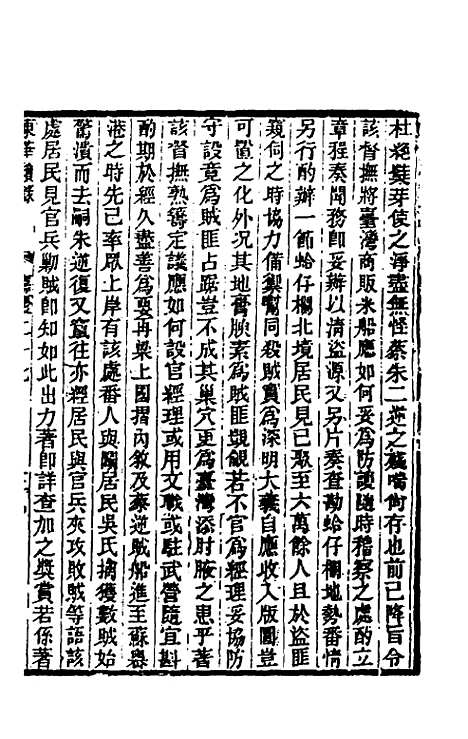 杜絕櫱芽使之淨盡無怪蔡朱二逆之殘喘尚存也前已降旨令
該督撫將臺灣商販米船應如何妥為防護隨時稽察之處酌立
章程奏聞務卽妥辦以清盜源又另片奏查勘蛤仔欄地勢番情
另行酌辦一節蛤仔欄北境居民見已聚至六萬餘人且於盜匪
窺伺之時協力備禦幫同殺賊實為深明大義自應收入版圖豈
可置之化外況其地膏腴素為賊匪覬覦若不官為經理妥協防
守設竟為賊匪占踞豈不成其巢穴更為臺灣添肘腋之患乎著
該督撫熟籌定議應如何設官經理或用文職或駐武營隨宜斟
酌期於經久盡善為要再梁上國摺內敘及蔡逆賊船進至蘇墺
港之時先已率眾上岸有該處番人與隔居民吳氏擒獲數賊始
驚潰而去嗣朱逆復又竄往亦經居民與官兵夾攻敗賊等語該
處居民見官兵勦賊卽知如此出力著卽詳查加之獎賞若係著
東華續錄